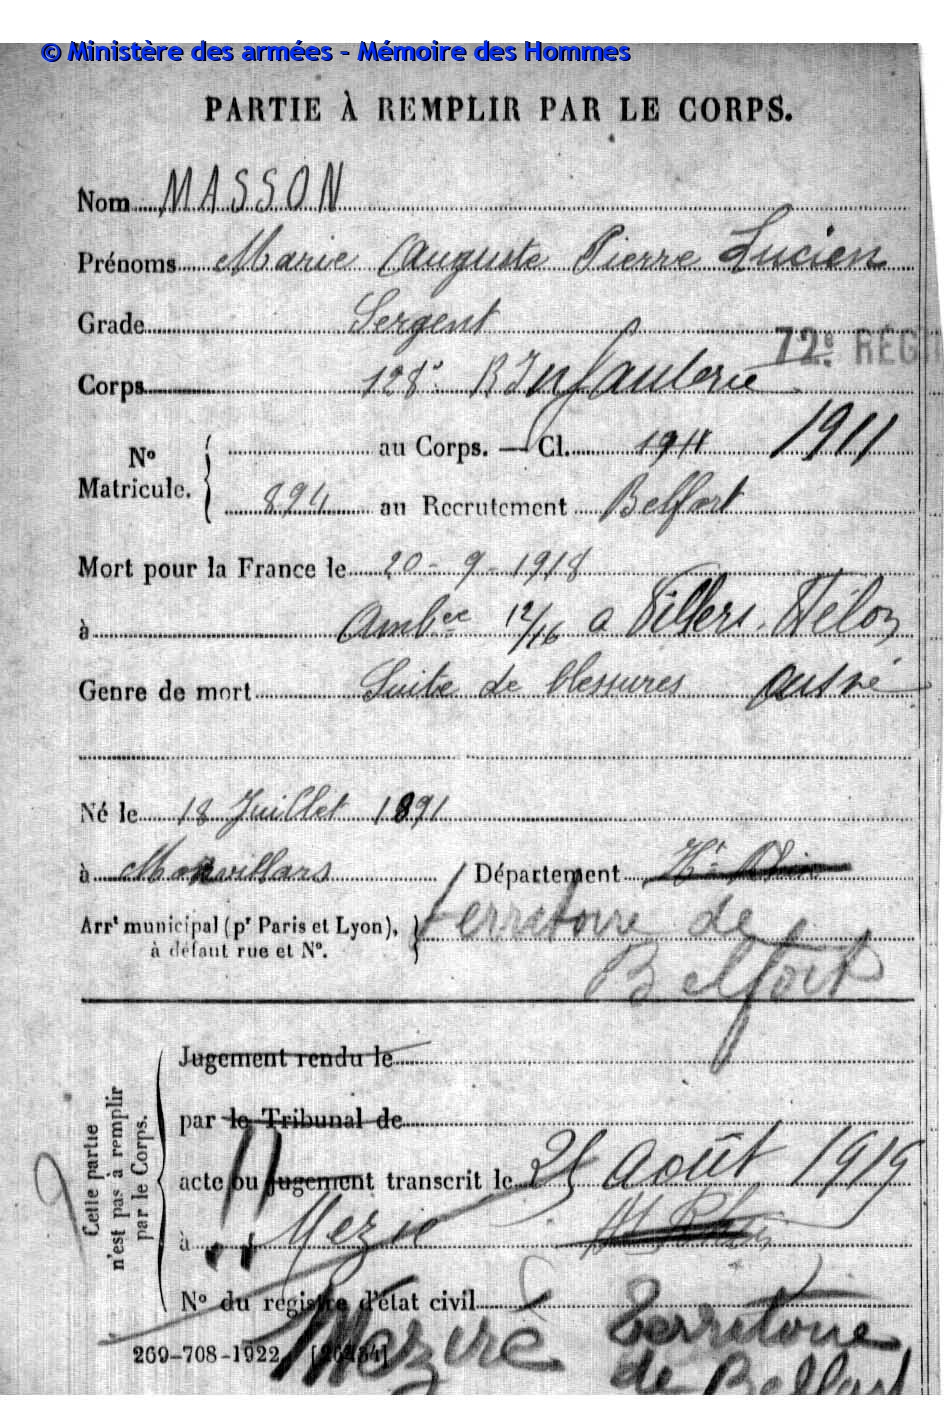 © Ministère des armées - Mémoire des Hommes
PARTIE À REMPLIR PAR LE CORPS.
Nom MASSON
Prénoms Marie Auguste Pierre Lucien
Grade Sergent
72e RÉG
Corps 128e R Infanterie
No Matricule. au Corps. — Cl. 1911 1911
894 au Recrutement Belfort
Mort pour la France le 20 - 9 - 1918
à Ambce 12/16 a Villers. Hélon
Genre de mort Suite de blessures Aisne
Né le 18 Juillet 1891
à Morvillars Département Ht Rhin
Arrt municipal (pr Paris et Lyon), à défaut rue et No. Territoire de
Belfort
Cette partie n'est pas à remplir par le Corps.
Jugement rendu le
par le Tribunal de
acte ou jugement transcrit le 25 Août 1919
à Mezie Ht Rhin
No du registre d'état civil
269-708-1922. [26434] Meziré Territoire
de Belfort